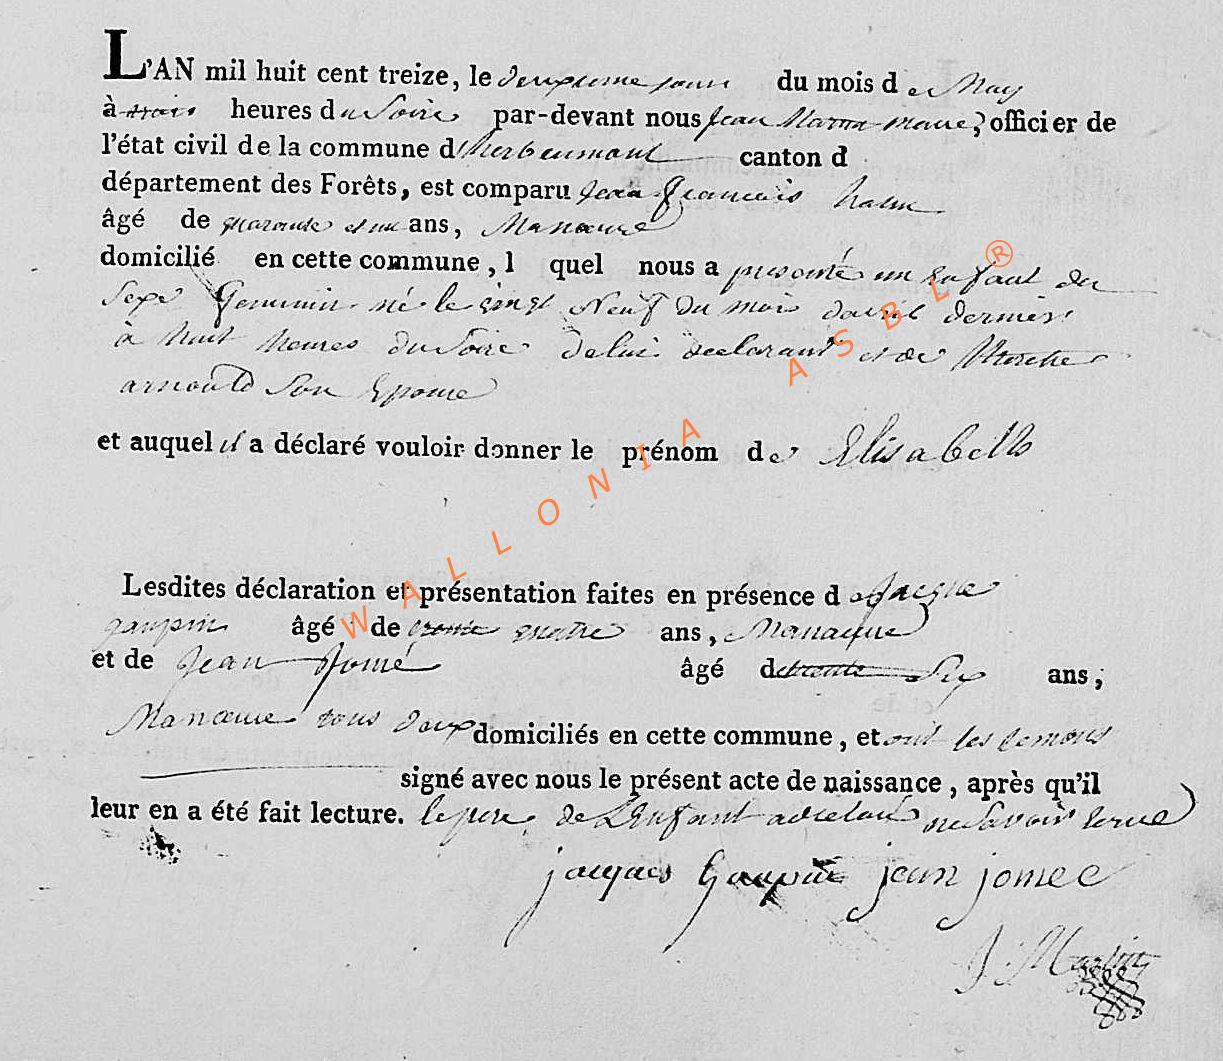 L'AN mil huit cent treize, le deuxieme jour du mois de May
à trois heures du Soire par-devant nous Jean Martin maire, officier de
l'état civil de la commune d'herbeumont canton d
département des Forêts, est comparu jean francois
âgé de quarante et un ans, Manœuvre
domicilié en cette commune, l quel nous a presenté un enfant du
Sexe feminin né le vingt Neuf du mois davril dernier
à huit heures du Soire de lui declarant et de
arnould Son Epouse
et auquel il a déclaré vouloir donner le prénom de Elisabeth
Lesdites déclaration et présentation faites en présence de Jacque
gaupin âgé de trente quatre ans, Manœuvre
et de Jean Jomé âgé de trente Six ans;
Manœuvre tous deux domiciliés en cette commune, et ont les temoins
signé avec nous le présent acte de naissance, après qu'il
leur en a été fait lecture. le pere de Lenfant a declaré ne savoir
jacques Gaupin jean jomee
J. Martin
WALLONIA ASBL ®